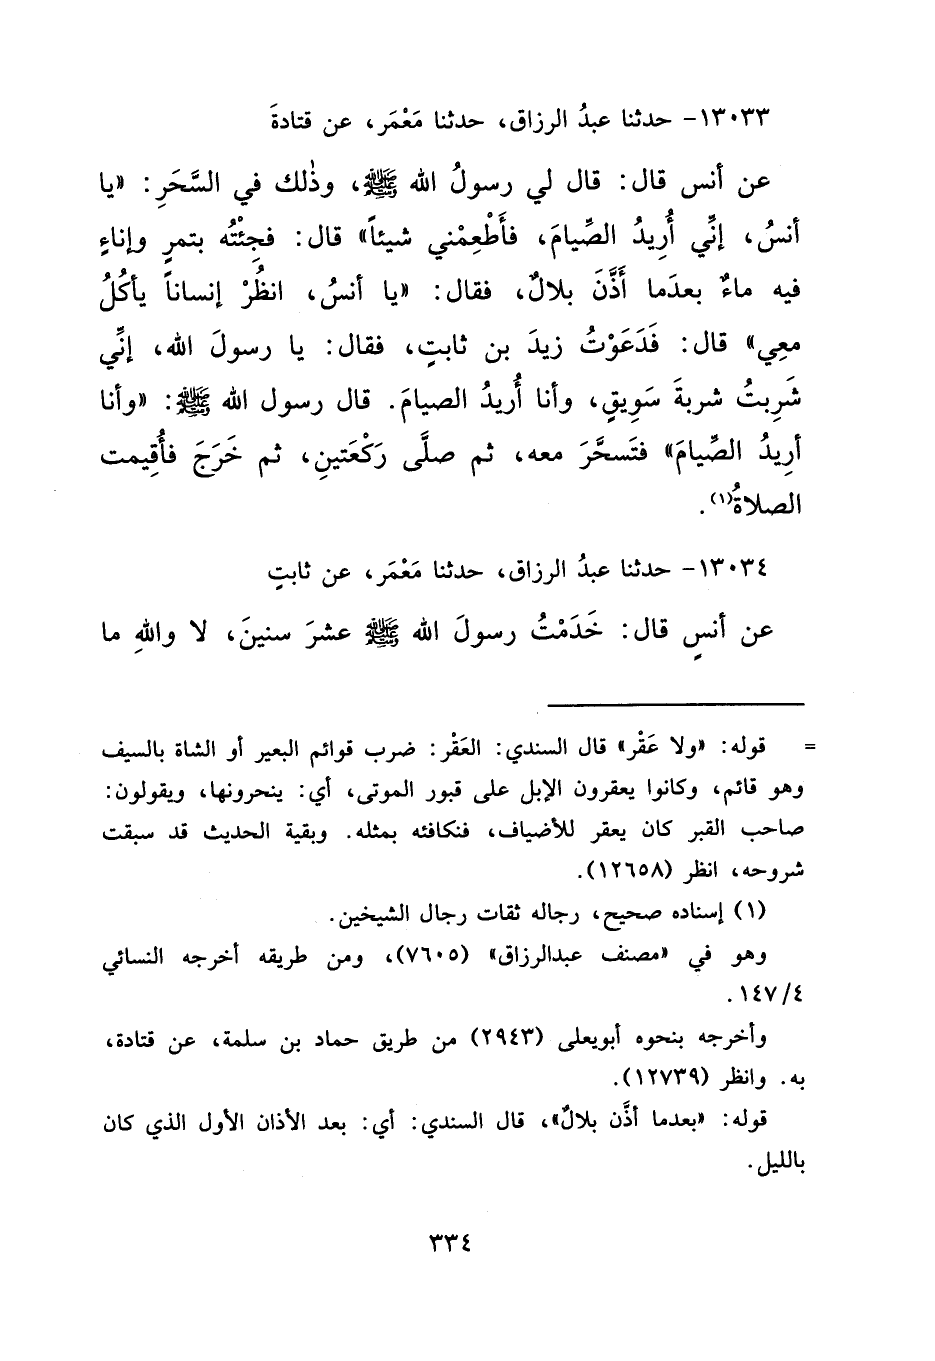 ١٣٠٣٣- حدثنا عبدُ الرزاق، حدثنا مَعْمَر، عن قتادةَ
عن أنس قال: قال لي رسولُ الله ﷺ، وذٰلك في السَّحَرِ: «يا
أنسُ، إنِّي أُرِيدُ الصِّيامَ، فأَطْعِمْني شيئاً» قال: فجِئْتُه بتمرٍ وإناءٍ
فيه ماءٌ بعدَما أَذَّنَ بلالٌ، فقال: «يا أنسُ، انظُرْ إنساناً يأكُلُ
معِي» قال: فَدَعَوْتُ زيدَ بن ثابتٍ، فقال: يا رسولَ الله، إنِّي
شَرِبتُ شربةَ سَوِيقٍ، وأنا أُريدُ الصيامَ. قال رسول الله ﷺ: «وأنا
أرِيدُ الصِّيامَ» فتَسحَّرَ معه، ثم صلَّى رَكْعَتينِ، ثم خَرَجَ فأُقِيمت
الصلاةُ(١).
١٣٠٣٤- حدثنا عبدُ الرزاق، حدثنا مَعْمَر، عن ثابتٍ
عن أنسٍ قال: خَدَمْتُ رسولَ الله ﷺ عشرَ سنينَ، لا واللهِ ما
= قوله: «ولا عَقْر» قال السندي: العَقْر: ضرب قوائم البعير أو الشاة بالسيف
وهو قائم، وكانوا يعقرون الإبل على قبور الموتى، أي: ينحرونها، ويقولون:
صاحب القبر كان يعقر للأضياف، فنكافئه بمثله. وبقية الحديث قد سبقت
شروحه، انظر (١٢٦٥٨).
(١) إسناده صحيح، رجاله ثقات رجال الشيخين.
وهو في «مصنف عبدالرزاق» (٧٦٠٥)، ومن طريقه أخرجه النسائي
١٤٧/٤.
وأخرجه بنحوه أبويعلى (٢٩٤٣) من طريق حماد بن سلمة، عن قتادة،
به. وانظر (١٢٧٣٩).
قوله: «بعدما أذَّن بلالٌ»، قال السندي: أي: بعد الأذان الأول الذي كان
بالليل.
٣٣٤